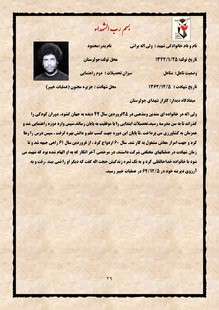 بسم رب الشهداء
نام و نام خانوادگی شهید : ولی اله براتی
نام پدر:محمود
تاریخ تولد :۱۳۴۴/۱/۲۵
محل تولد:دولرستان
وضعیت تاهل: متاهل
میزان تحصیلات : دوم راهنمایی
تاریخ شهادت : ۱۳۶۲/۱۲/۵
محل شهادت : جزیره مجنون (عملیات خیبر)
میعادگاه دیدار: گلزار شهدای دولرستان
ولی اله در خانواده ای متدین ومذهبی در ۲۵فروردین سال ۴۴ دیده به جهان گشود. دوران کودکی را
گذراند تا به سن مدرسه رسید.تحصیلات ابتدایی را با موفقیت به پایان رساند.سپس وارد دوره راهنمایی شد و
همزمان به کشاورزی می پرداخت .تا پایان این دوره جهت کسب علم و دانش بهره گرفت . سپس درس را رها
کرد و جهت امرار معاش مشغول به کار شد. سال ۶۰ ازدواج کرد . از فروردین سال ۶۱ راهی جبهه شد و تا
زمان شهادت در عملیاتهای مختلفی شرکت داشت. در مرخصی آخر انگار که به او الهام شده بود که شهید می
شود با خانواده خداحافظی کرد و به تک ثمره زندگیش حجت اله گفت که دیگر او را نمی بیند .رفت و به
آرزوی دیرینه خود در ۶۲/۱۲/۵ در عملیات خیبر رسید.
۳۹